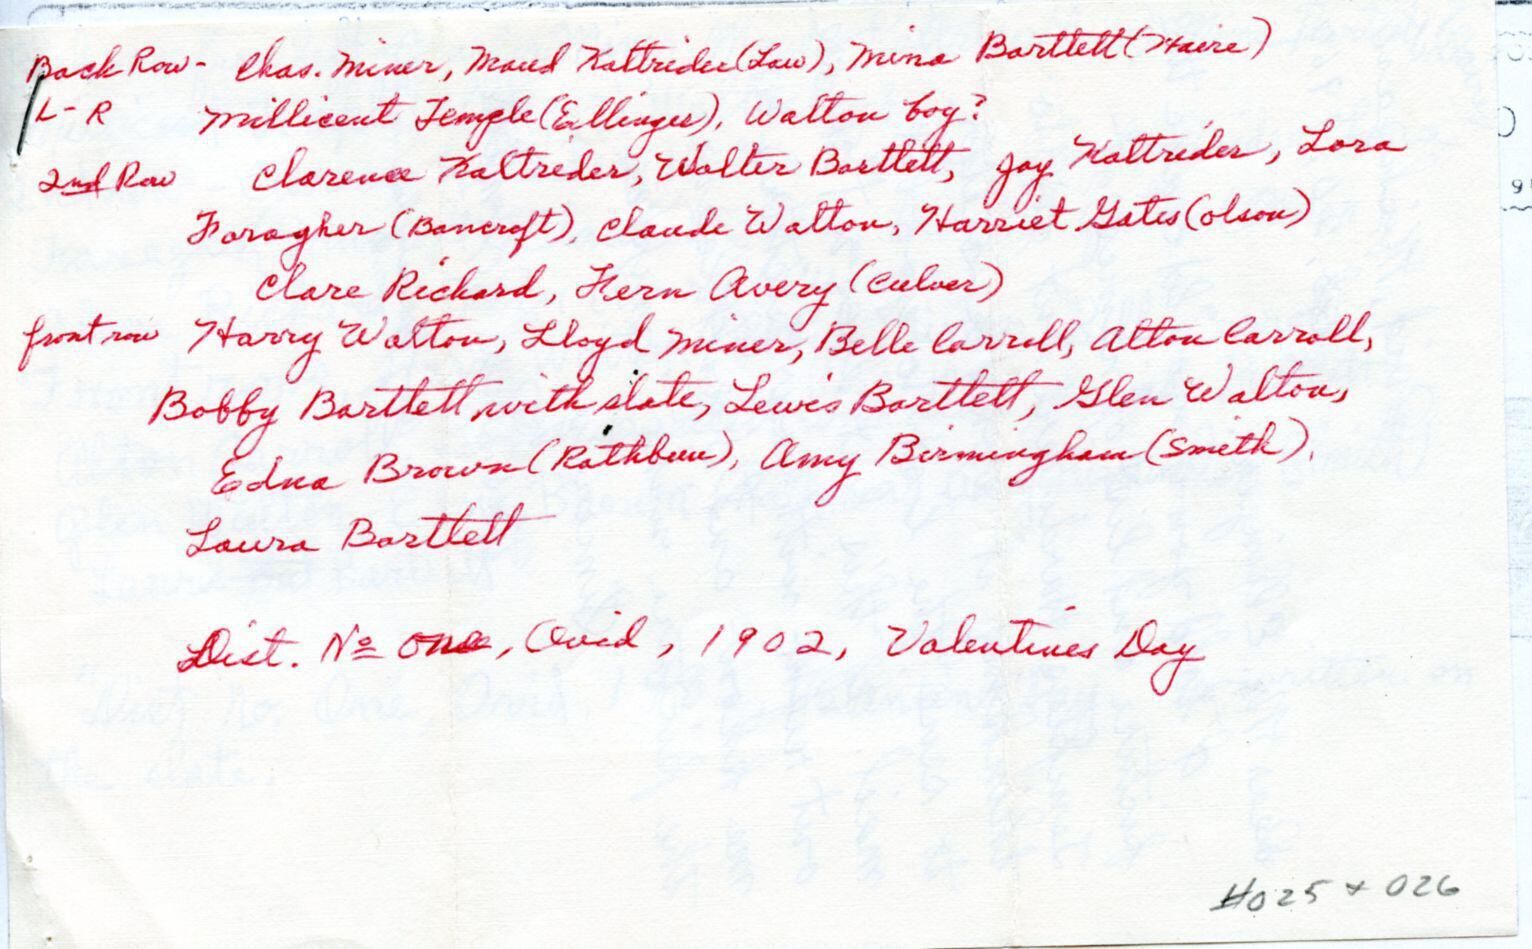 Back Row - Chas. Miner, Maud Kaltrider (Law), Mina Bartlett (Haire)
L - R Millicent Temple (Ellinger), Walton boy?
2nd Row Clarence Kaltrider, Walter Bartlett, Jay Kaltrider, Lora
Faragher (Bancroft), Claude Walton, Harriet Gates (Olson)
Clare Richard, Fern Avery (Culver)
front row Harry Walton, Lloyd Miner, Belle Carroll, Alton Carroll,
Bobby Bartlett with slate, Lewis Bartlett, Glen Walton,
Edna Brown (Rathbun), Amy Birmingham (Smith).
Laura Bartlett
Dist. No one, Ovid, 1902, Valentines Day
#025 + 026